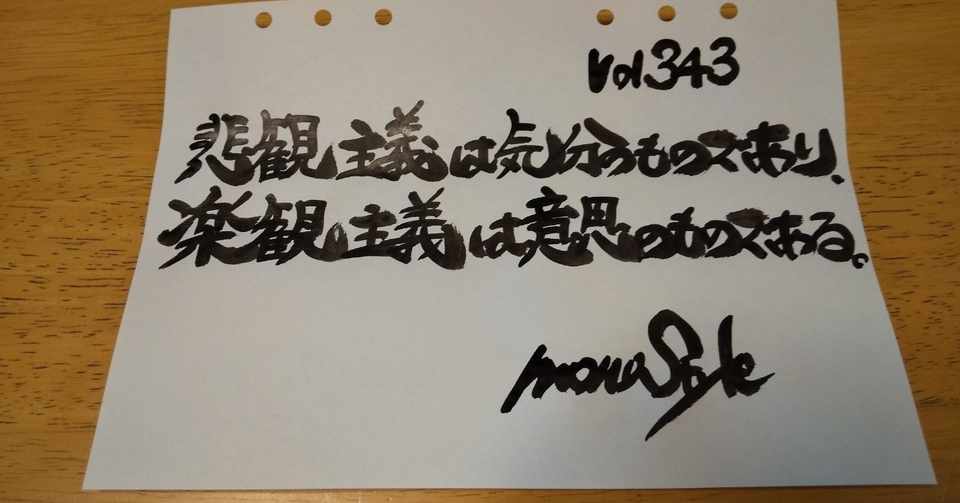 Vol.343
悲観主義は気分のものであり、
楽観主義は意思のものである。
monoStyle